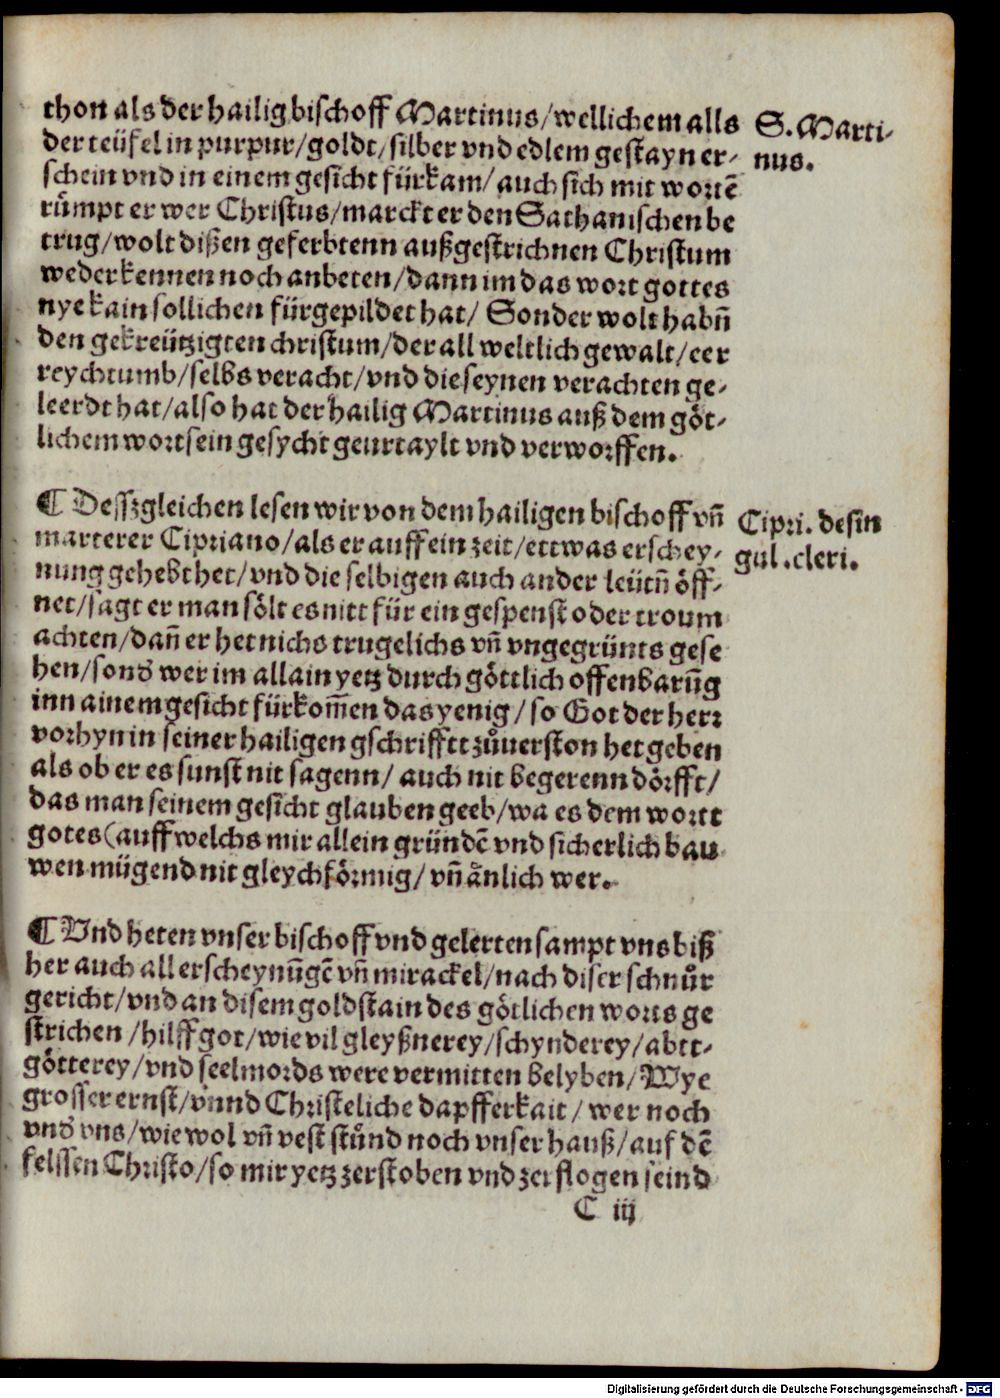 thon als der hailig bischoff Martinus/wellichem alls
der teüfel in purpur/goldt/silber vnd edlem gestayn er-
schein vnd in einem gesicht fürkam/ auch sich mit wortē
rümpt er wer Christus/marckt er den Sathanischen be
trug/wolt dißen geferbtenn außgestrichnen Christum
weder kennen noch anbeten/dann im das wort gottes
nye kain sollichen fürgepildet hat/ Sonder wolt habn̄
den gekreützigten christum/der all weltlich gewalt/eer
reychtumb/selbs veracht/vnd die seynen verachten ge-
leerdt hat/also hat der hailig Martinus auß dem göt-
lichem wort sein gesycht geurtaylt vnd verworffen.
S. Marti-
nus.
¶ Dessz gleichen lesen wir von dem hailigen bischoff vn̄
marterer Cipriano/als er auff ein zeit/ettwas erschey-
nung gehebt het/vnd die selbigen auch ander leütn̄ öff-
net/sagt er man sölt es nitt für ein gespenst oder troum
achten/dan̄ er het nichs trugelichs vn̄ vngegrünts gese
hen/sonď wer im allain yetz durch göttlich offenbarūg
inn ainem gesicht fürkom̄en das yenig/so Got der herr
vorhyn in seiner hailigen gschrifft zůuerston het geben
als ob er es sunst nit sagenn/ auch nit begerenn dörfft/
das man seinem gesicht glauben geeb/wa es dem wortt
gotes (auff welchs mir allein gründē vnd sicherlich bau
wen mügend nit gleychförmig/vn̄ änlich wer.
Cipri. de sin
gul. cleri.
¶ Vnd heten vnser bischoff vnd gelerten sampt vns biß
her auch all erscheynūgē vn̄ mirackel/nach diser schnůr
gericht/vnd an disem goldstain des götlichen worts ge
strichen /hilff got/wie vil gleyßnerey/schynderey/abtt-
götterey/vnd seelmords were vermitten belyben/Wye
grosser ernst/vnnd Christeliche dapfferkait/ wer noch
vnď vns/wie wol vn̄ vest stůnd noch vnser hauß/auf dē
felssen Christo/so mir yetz zerstoben vnd zerflogen seind
C iij
Digitalisierung gefördert durch die Deutsche Forschungsgemeinschaft - DFG